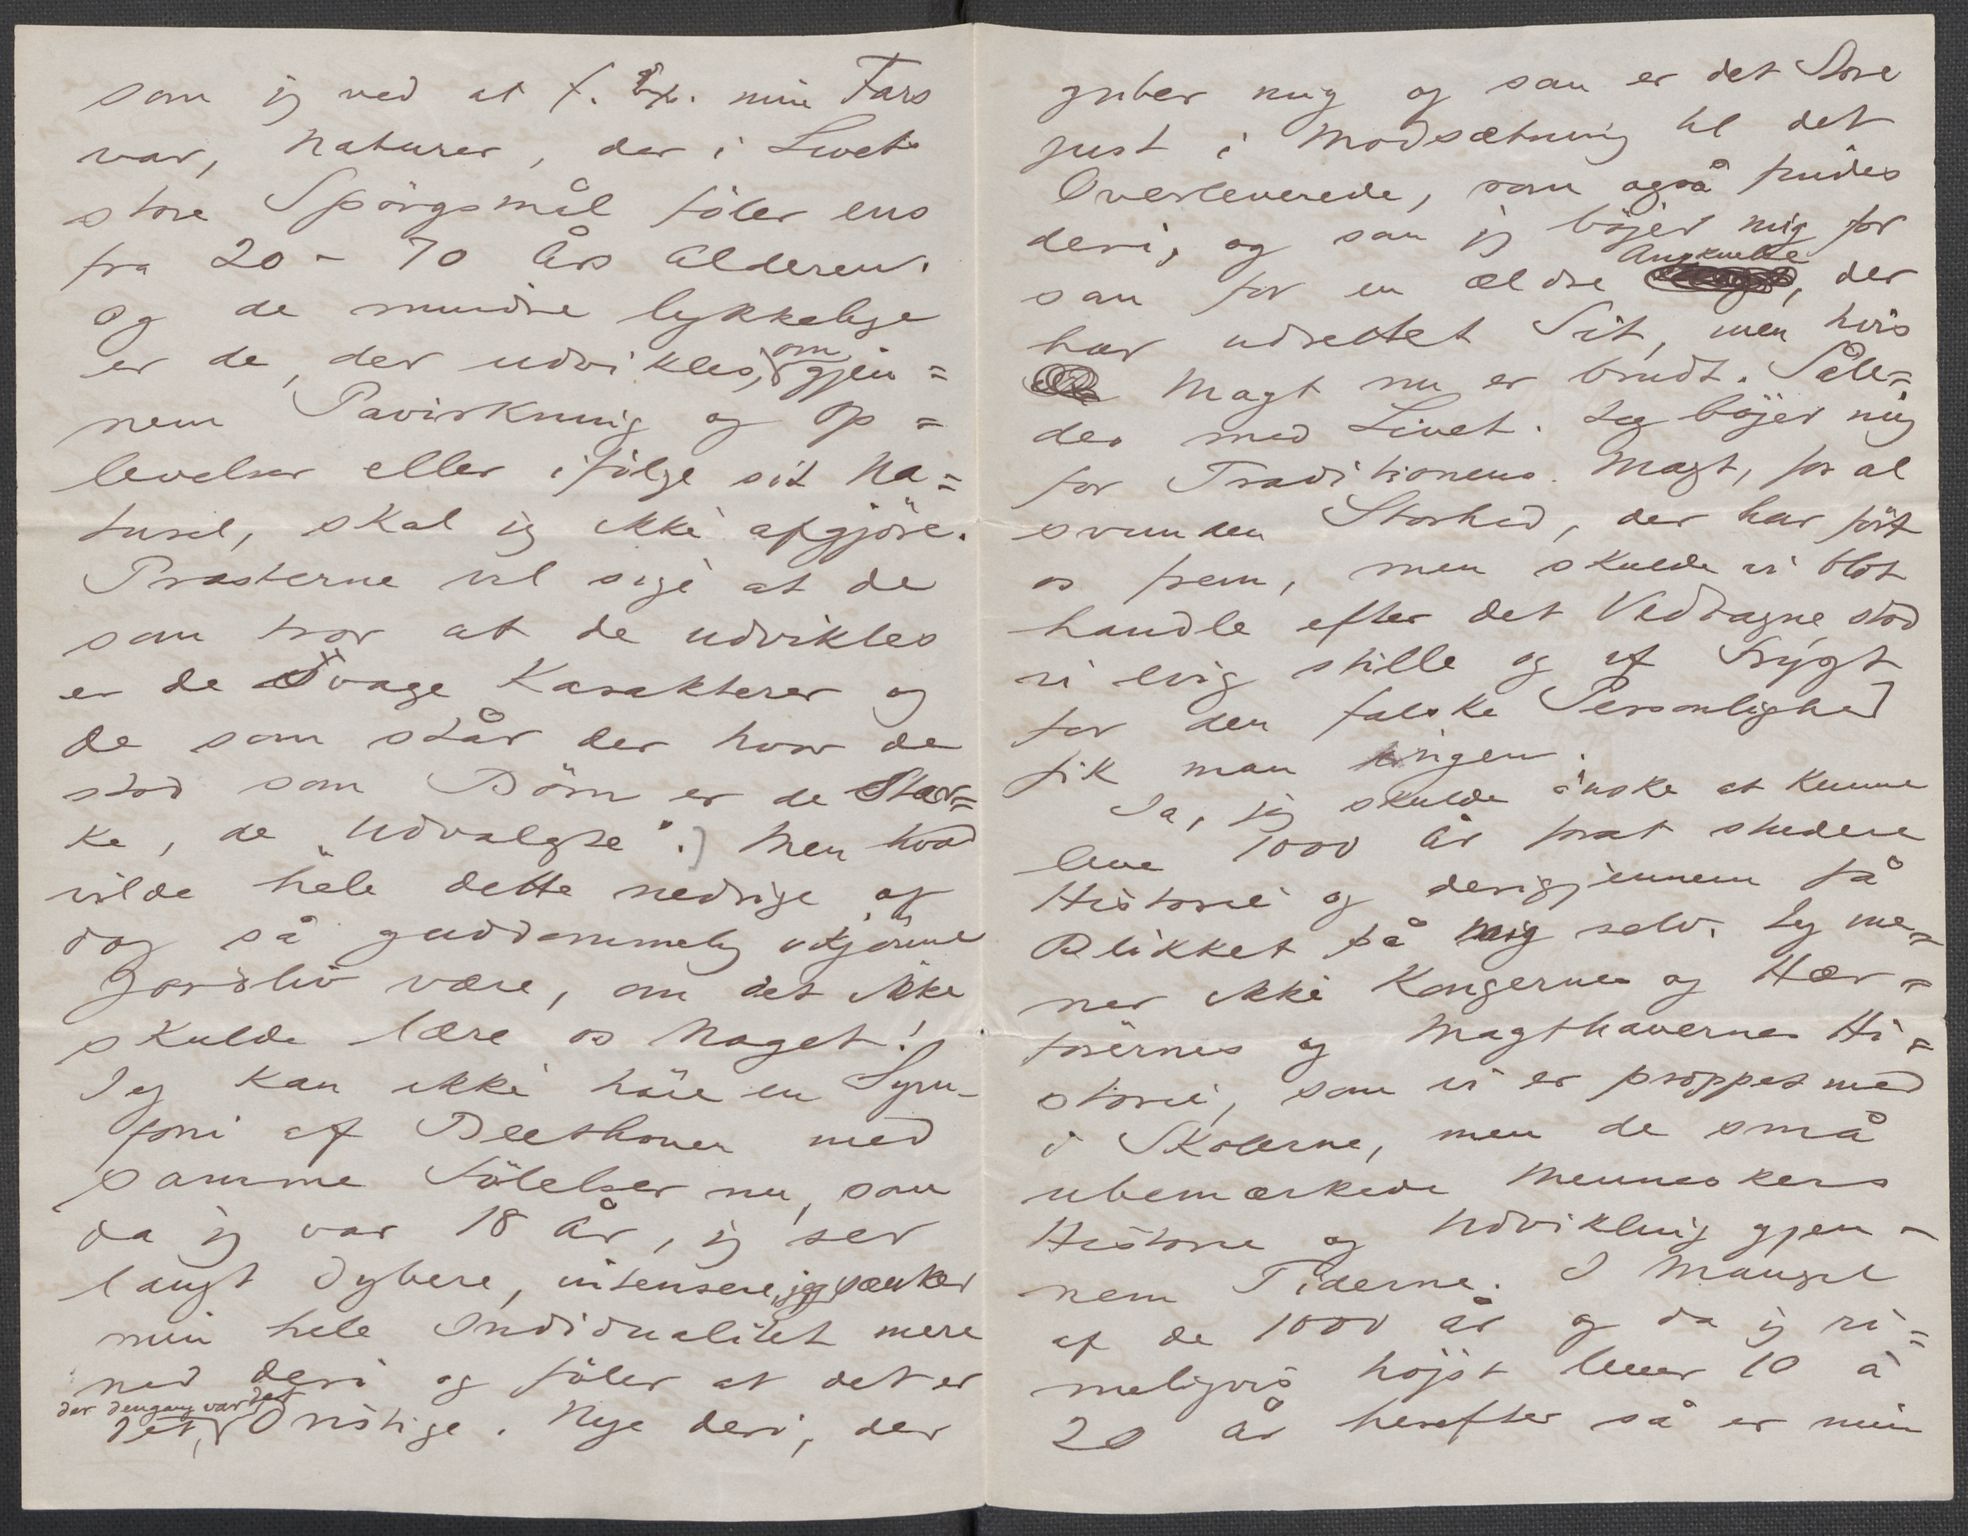 som jeg ved at f. Ex. min Fars
var, Naturer, der i Livets
store Spörgsmål föler ens
fra 20 – 70 Års Alderen.
og de mindre lykkelige
er de, der udvikles, om gjen=
nem Pavirkning og Op=
levelser eller ifölge sit Na=
turel, skal jeg ikke afgjöre.
Præsterne vil sige at de
som tror at de udvikles
er de Svage Karakterer og
de som står der hvor de
stod som Börn er de Stær=
ke, de "Udvalgte".) Men hvad
vilde hele dette nedrige og
dog så guddommelig skjönne
Jordsliv være, om det ikke
skulde lære os Noget!
Jeg kan ikke höre en Sym-
foni af Beethoven med
samme Fölelser nu, som
da jeg var 18 År, jeg ser
langt dybere, intensere, jeg sænker
min hele Individualitet mere
ned deri og föler at det er
der dengang var det
det, Onistige. Nye deri, der
griber mig og som er det Store
just i Modsætning til det
Overleverede, som også findes
deri, og som jeg böjer mig for
som for en ældre Angkuelse, der
har udrettet Sit, men hvis
Magt nu er brudt. Såle=
des med Livet. Jeg böjer mig
for Traditionens Magt, for al
svunden Storhed, der har fört
os frem, men skulde vi blot
handle efter det Vedtagne, stod
vi evig stille og af Frygt
for den falske Personlighed
fik man ingen.
Ja, jeg skulde önske at kunne
leve 1000 År forat studere
Historie og derigjennem få
Blikket på mig selv. Jeg me=
ner ikke Kongernes og Hær=
förernes og Magthavernes Hi=
storie, som vi er proppet med
i Skolerne, men de små
ubemærkede Menneskers
Historie og Udvikling gjen-
nem Tiderne. I Mangel
af de 1000 År og da jeg ri=
meligvis höjst lever 10 à
20 År herefter så er min